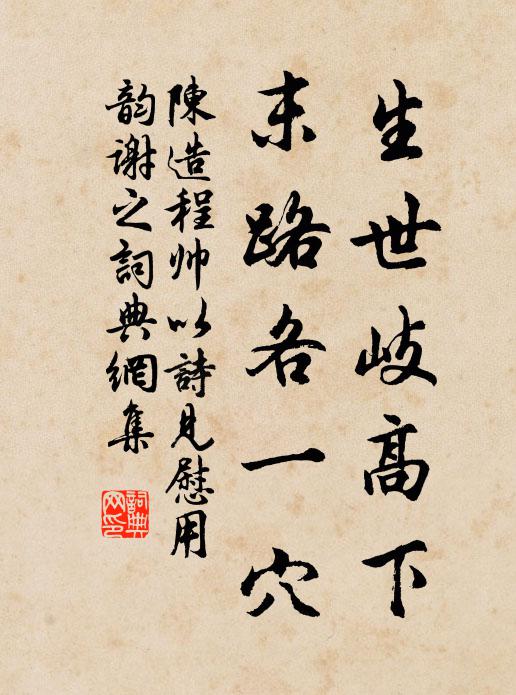 生世歧高下
末路各一穴
陳造程帅以詩見慰用
韵謝之詞典網集
詞典網印